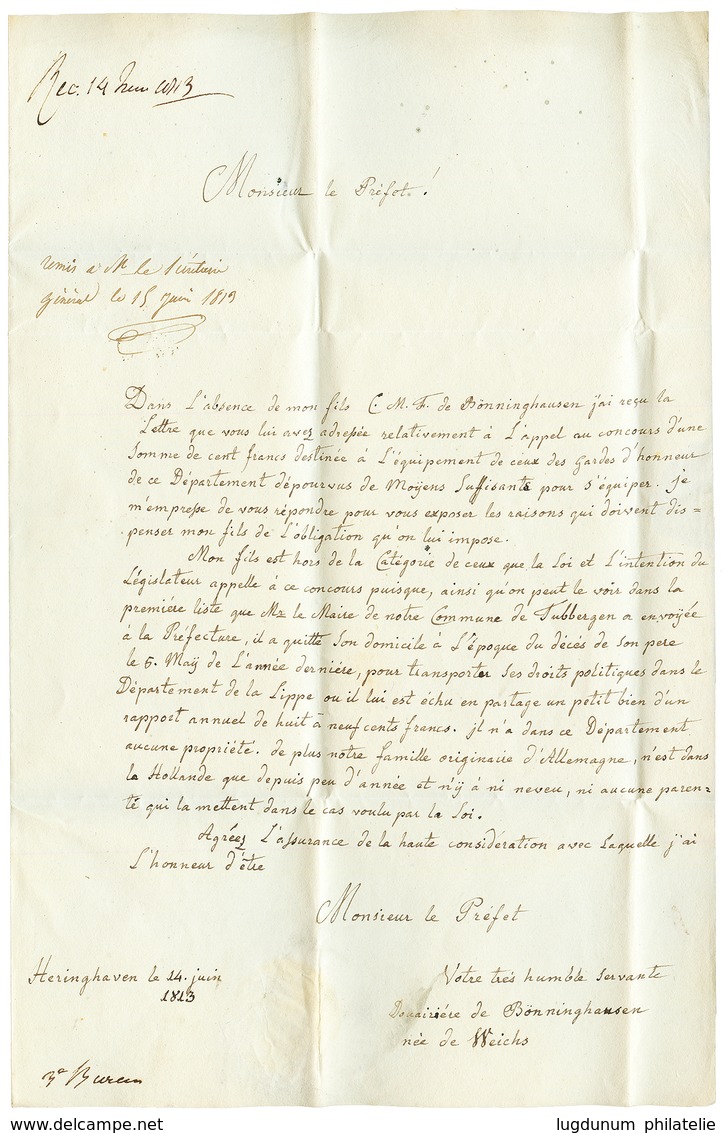 Rec. 14 Juin 1813
Monsieur le Préfet!
remis a Mr le Secrétaire
général le 15 Juin 1813
Dans L'absence de mon fils C. M. F. de Bönninghausen j'ai reçu la
Lettre que vous lui avez adressée relativement à L'appel au concours d'une
Somme de cent francs destinée à L'équipement de ceux des Gardes d'honneur
de ce Département dépourvus de Moÿens Suffisants pour s'équiper. je
m'empresse de vous répondre pour vous exposer les raisons qui doivent dis=
penser mon fils de L'obligation qu'on lui impose.
Mon fils est hors de la Catégorie de ceux que la Loi et L'intention du
Législateur appelle à ce concours puisque, ainsi qu'on peut le voir dans la
premiére liste que Mr le Maire de notre Commune de Tubbergen a envoÿée
à la Préfecture, il a quitté Son domicile à L'époque du décés de Son pere
le 5. Maÿ de L'année derniére, pour transporter Ses droits politiques dans le
Département de la Lippe ou il lui est échu en partage un petit bien d'un
rapport annuel de huit à neuf cents francs. jl n'a dans ce Département
aucune propriété. de plus notre famille originaire d'Allemagne, n'est dans
la Hollande que depuis peu d'année et n'ÿ à ni neveu, ni aucune paren=
té qui la mettent dans le cas voulu par la Loi.
Agréez L'assurance de la haute considération avec Laquelle j'ai
L'honneur d'étre
Monsieur le Préfet
Heringhaven le 14. juin
1813
Votre trés humble Servante
Douairiére de Bönninghausen
née de Weichs
3e Bureau
lugdunum philatelie